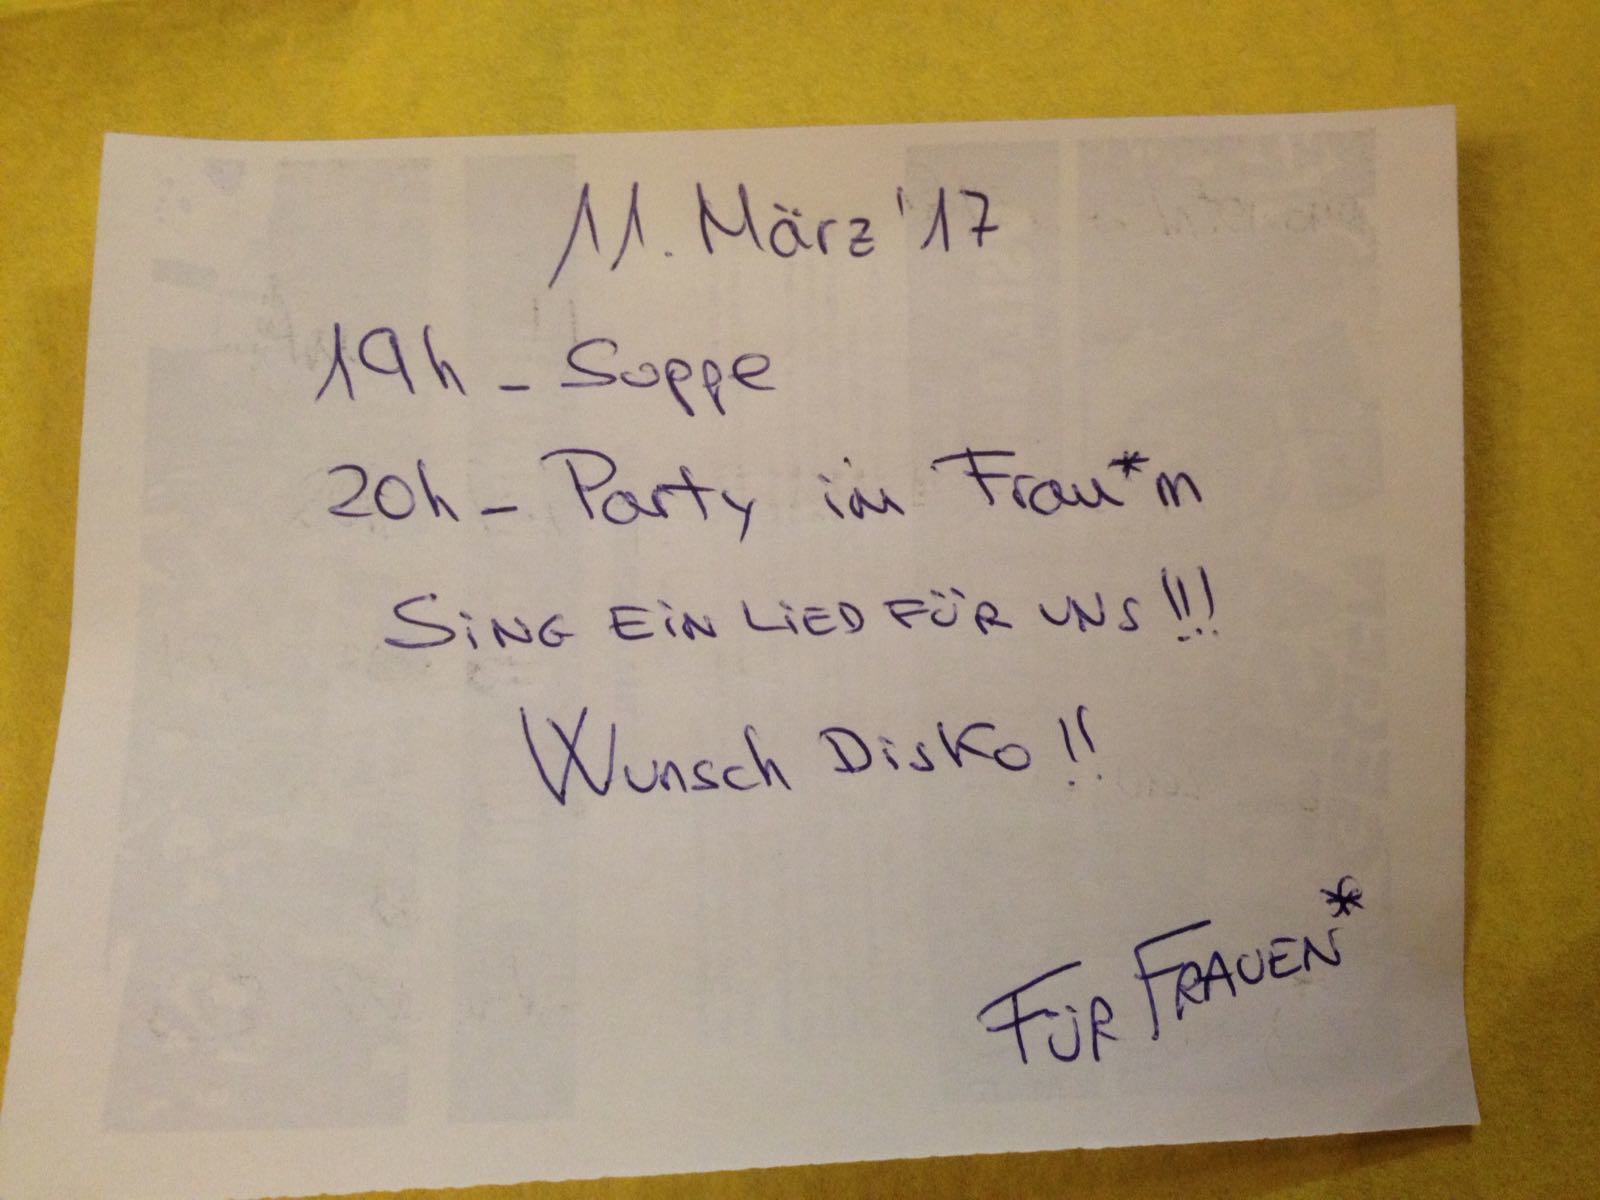 11. März '17
19h - Suppe
20h - Party im Frau*m
SiNG EiN LiED FÜR UNS !!!
Wunsch Disko !!
FÜR FRAUEN*